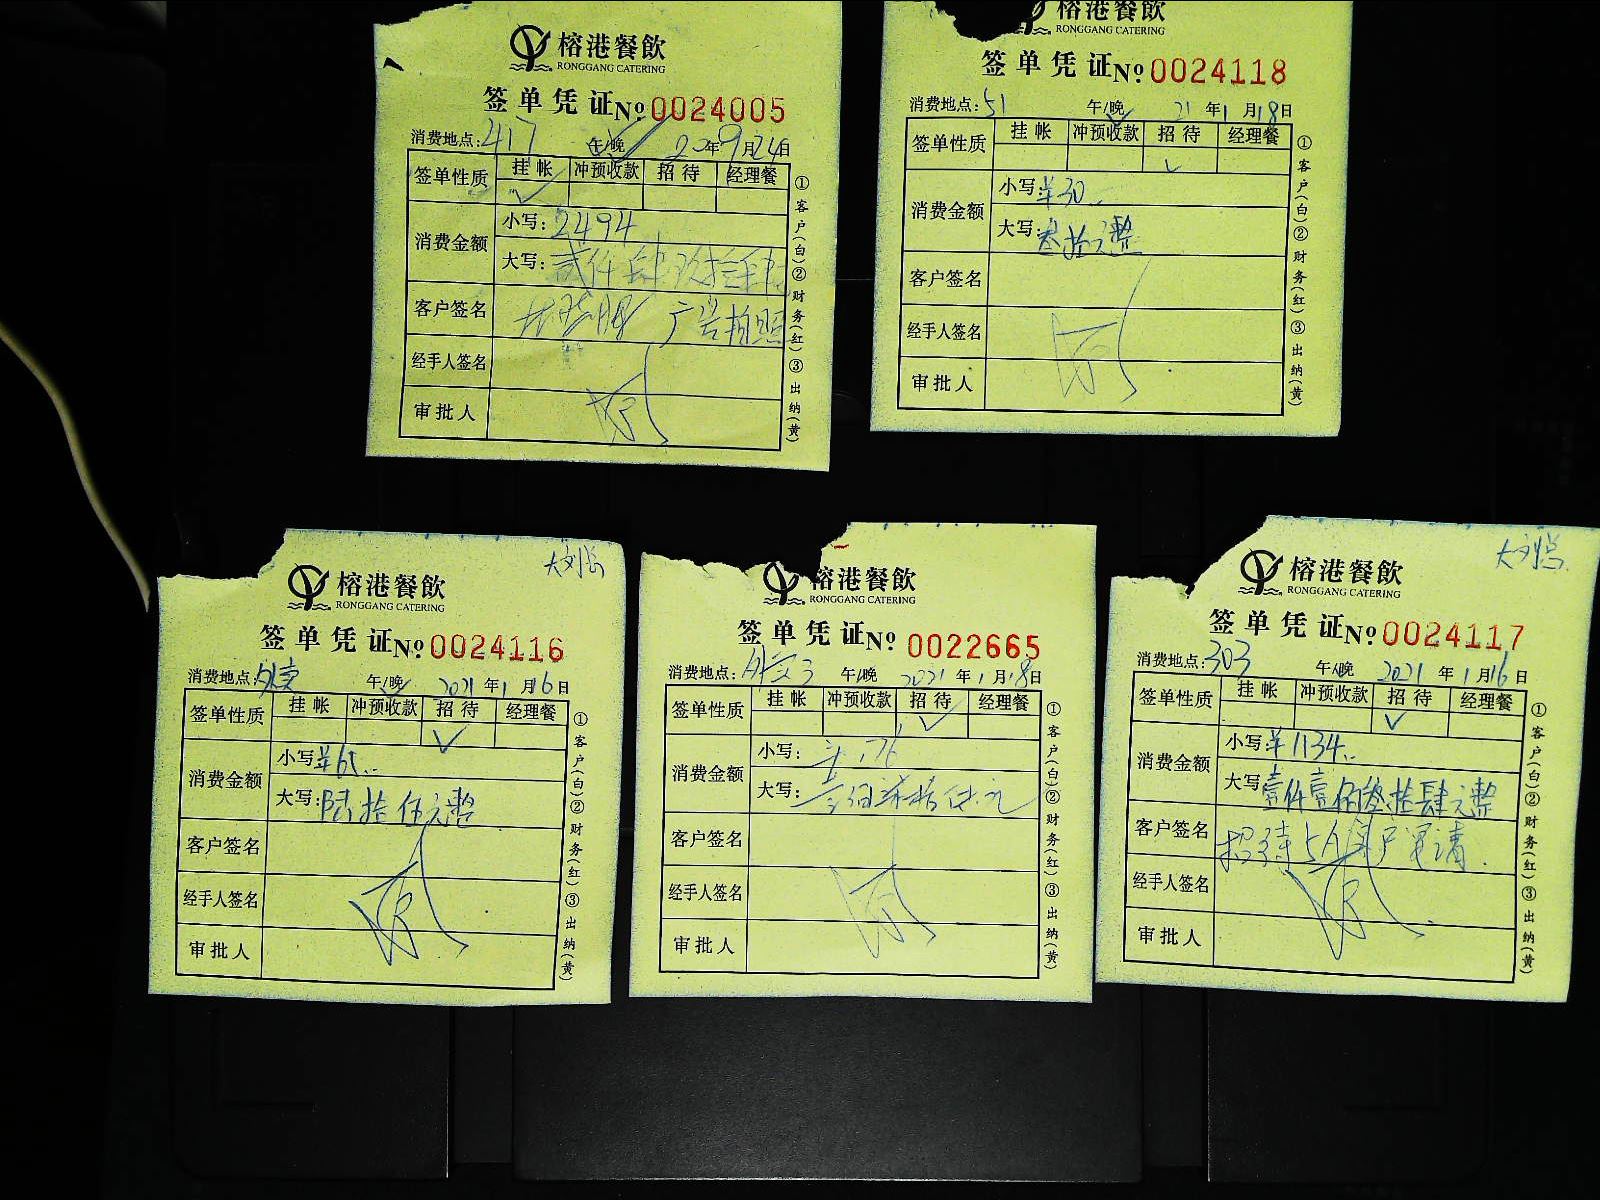 榕港餐飲
RONGGANG CATERING
签单凭证 №0024005
消费地点:417 午/晚 20年9月24日
签单性质 挂帐 冲预收款 招待 经理餐
消费金额 小写:2494
大写:贰仟肆玖拾肆
客户签名 广告拍照
经手人签名
审批人
①客户(白)②财务(红)③出纳(黄)
榕港餐飲
RONGGANG CATERING
签单凭证 №0024118
消费地点:51 午/晚 21年1月18日
签单性质 挂帐 冲预收款 招待 经理餐
消费金额 小写:¥30
大写:叁拾元整
客户签名
经手人签名
审批人
①客户(白)②财务(红)③出纳(黄)
榕港餐飲
RONGGANG CATERING
签单凭证 №0024116
消费地点: 午/晚 2021年1月16日
签单性质 挂帐 冲预收款 招待 经理餐
消费金额 小写:¥65
大写:陆拾伍元整
客户签名
经手人签名
审批人
①客户(白)②财务(红)③出纳(黄)
榕港餐飲
RONGGANG CATERING
签单凭证 №0022665
消费地点: 午/晚 2021年1月18日
签单性质 挂帐 冲预收款 招待 经理餐
消费金额 小写:
大写:
客户签名
经手人签名
审批人
①客户(白)②财务(红)③出纳(黄)
大刘总
榕港餐飲
RONGGANG CATERING
签单凭证 №0024117
消费地点:303 午/晚 2021年1月16日
签单性质 挂帐 冲预收款 招待 经理餐
消费金额 小写:¥1134
大写:壹仟壹佰叁拾肆元整
客户签名 招待
经手人签名
审批人
①客户(白)②财务(红)③出纳(黄)